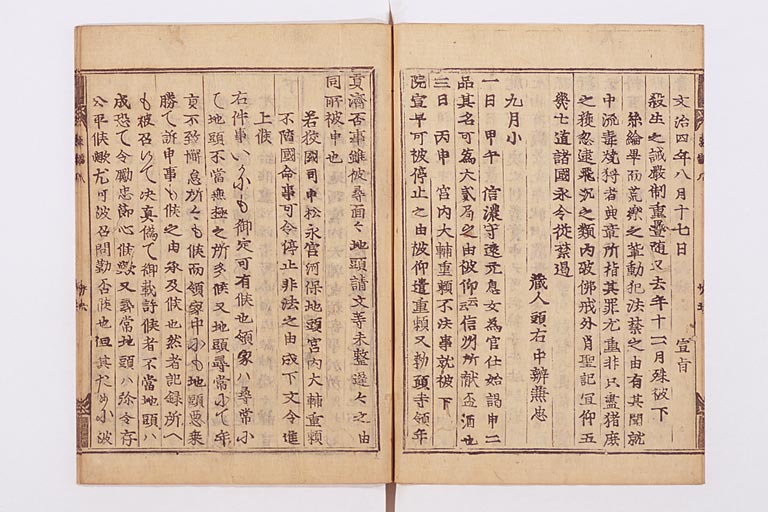 文治四年八月十七日　宣旨
殺生之誡厳制重畳随又去年十二月殊被下
絲綸畢而荒楽之輩動犯法禁之由有其聞就
中流毒焼狩者典章所指其罪尤重非只盡猪鹿
之獲忽逮飛沉之類内破佛戒外背聖記宜仰五
畿七道諸國永令従禁遏
蔵人頭右中辨兼忠
九月小
一日　甲午　信濃守遠元息女為官仕始謁申二
品其名可為大貳局之由被仰云云信州所献盃酒也
三日　丙申　宮内大輔重頼不法事就被下
院宣早可被停止之由被仰遣重頼又勅願寺領年
貢済否事雖被尋面々地頭請文等未整遅々之由
同所被申也
若狭國司申松永宮河保地頭宮内大輔重頼
不随國命事可令停止非法之由成下文令進
上候
右件事いかにも御定可有候也領家ハ尋常に
て地頭不當無極之所多候又地頭尋常にて年
貢不致懈怠所々も候而領家中にも地頭悪
勝て訴申事も候之由承及候也然者記録所へ
も被召行て決真偽て御裁許候者不當地頭ハ
成恐て令勵忠節心候歟又尋常地頭ハ弥令存
公平候歟尤可被召問勤否候也但其ためにハ被